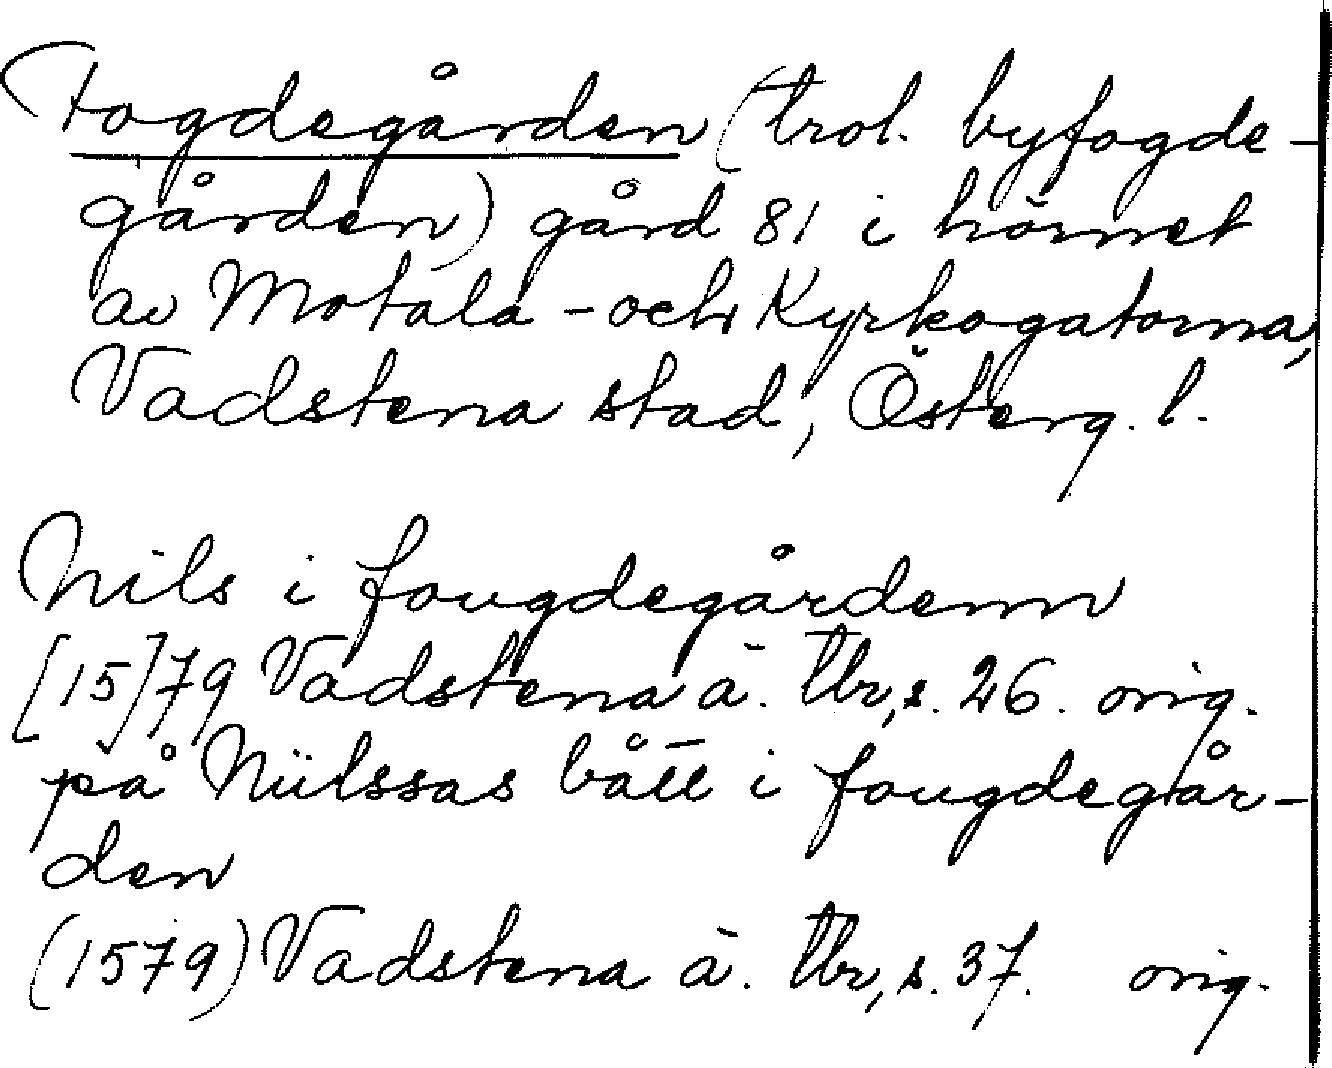 Fogdegården (trol. byfogde-
gården) gård 81 i hörnet
av Motala- och Kyrkogatorna,
Vadstena stad, Österg. l.
Nils i fougdegårdenn
[15]79 Vadstena ä. tbr, s. 26. orig.
på Niilssas bått i fougdegår-
den
(1579) Vadstena ä. tbr, s. 37. orig.